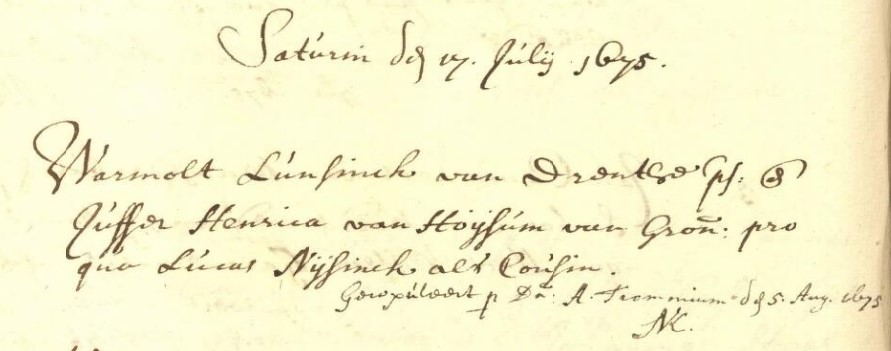 Saturni den 17. Julij 1675.
Warmolt Lunsinck van Drenthe ps: &
Juffer Henrica van Hoijsum van Gron̄: pro
qua Lucas Nijsinck als Cousin.
Gecopuleert p Dn̄: A. Trommium den 5. Aug. 1675